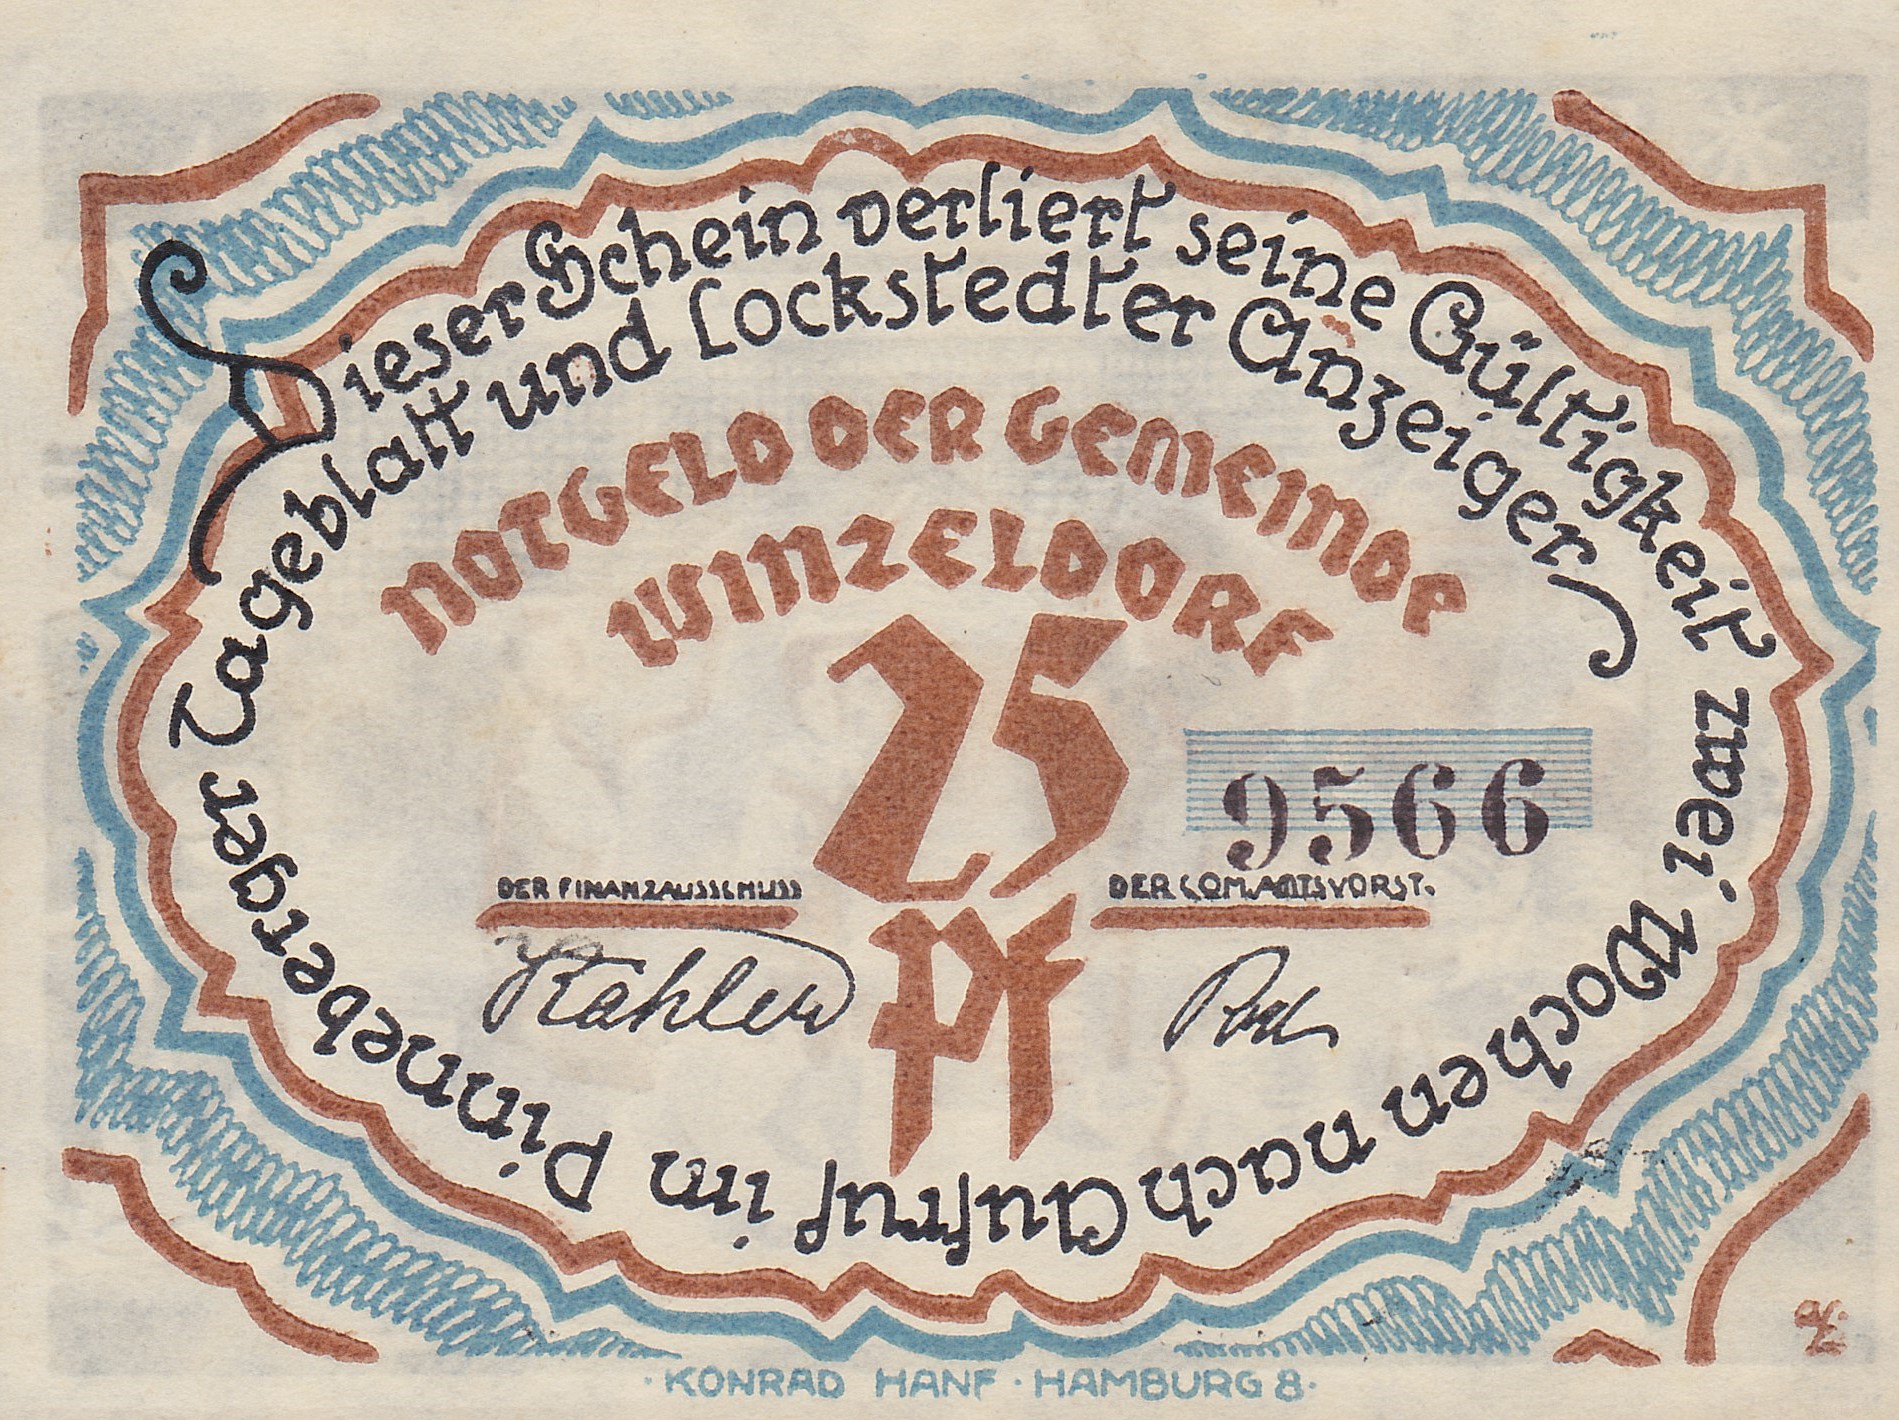 Dieser Schein verliert seine Gültigkeit zwei Wochen nach Aufruf im Pinneberger Tageblatt und Lockstedter Anzeiger
NOTGELD DER GEMEINDE
WINZELDORF
25
Pf
9566
DER FINANZAUSSCHUSS
DER COM.AMTSVORST.
Kahlen
KONRAD HANF · HAMBURG 8·